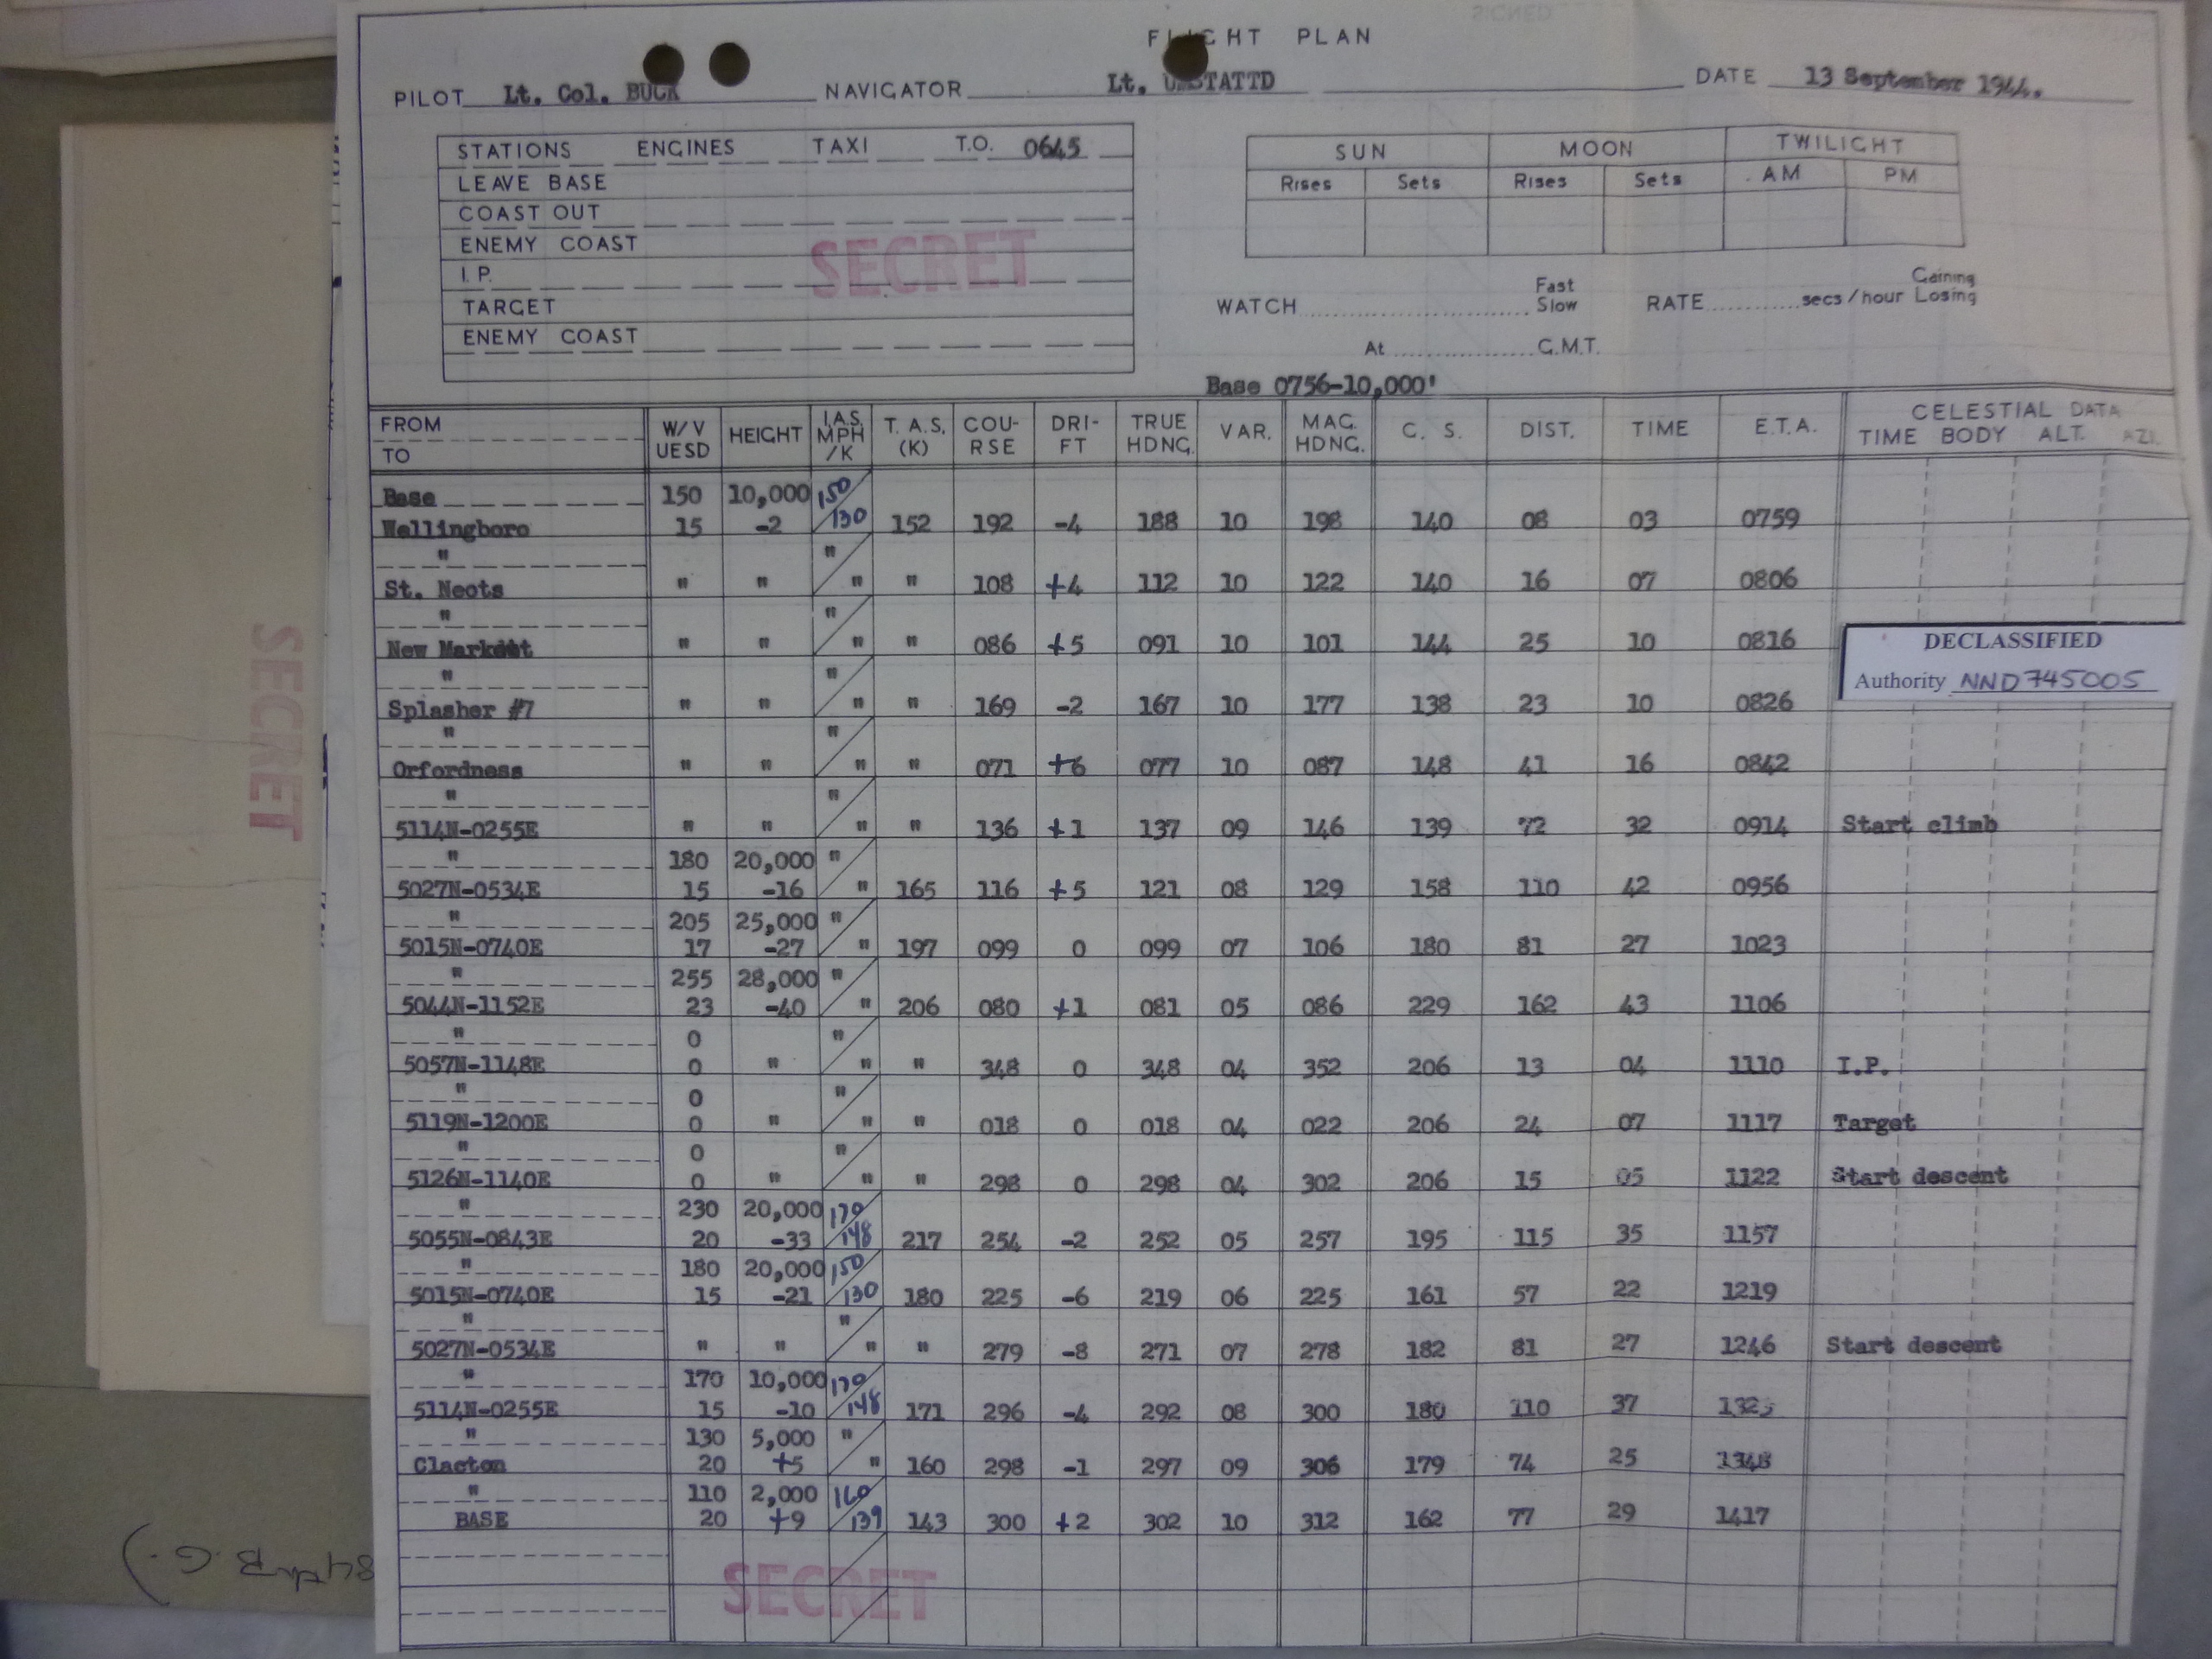 FLIGHT PLAN
PILOT Lt. Col. BUCK NAVIGATOR Lt. DATE 13 September 1944.
STATIONS ENGINES TAXI T.O. 0645
LEAVE BASE
COAST OUT
ENEMY COAST
I.P.
TARGET
ENEMY COAST
SECRET
SUN MOON TWILIGHT
Rises Sets Rises Sets AM PM
WATCH Fast Slow RATE secs/hour Gaining Losing
At G.M.T.
Base 0756-10,000'
FROM TO W/V UESD HEIGHT I.A.S. MPH /K T.A.S. (K) COU-RSE DRI-FT TRUE HDNG. VAR. MAG. HDNG. G. S. DIST. TIME E.T.A. CELESTIAL DATA TIME BODY ALT. AZI.
Base 150 10,000 150
Wellingboro 15 -2 130 152 192 -4 188 10 198 140 08 03 0759
" "
St. Neots " " " " 108 +4 112 10 122 140 16 07 0806
" "
New Market " " " " 086 +5 091 10 101 144 25 10 0816
" "
Splasher #7 " " " " 169 -2 167 10 177 138 23 10 0826
" "
Orfordness " " " " 071 +6 077 10 087 148 41 16 0842
" "
5114N-0255E " " " " 136 +1 137 09 146 139 72 32 0914 Start climb
" 180 20,000 "
5027N-0534E 15 -16 " 165 116 +5 121 08 129 158 110 42 0956
" 205 25,000 "
5015N-0740E 17 -27 " 197 099 0 099 07 106 180 81 27 1023
" 255 28,000 "
5044N-1152E 23 -40 " 206 080 +1 081 05 086 229 162 43 1106
" 0 "
5057N-1148E 0 " " " 348 0 348 04 352 206 13 04 1110 I.P.
" 0 "
5119N-1200E 0 " " " 018 0 018 04 022 206 24 07 1117 Target
" 0 "
5126N-1140E 0 " " " 298 0 298 04 302 206 15 05 1122 Start descent
" 230 20,000 170
5055N-0843E 20 -33 148 217 254 -2 252 05 257 195 115 35 1157
" 180 20,000 150
5015N-0740E 15 -21 130 180 225 -6 219 06 225 161 57 22 1219
" "
5027N-0534E " " " " 279 -8 271 07 278 182 81 27 1246 Start descent
" 170 10,000 170
5114N-0255E 15 -10 148 171 296 -4 292 08 300 180 110 37
" 130 5,000 "
Clacton 20 +5 " 160 298 -1 297 09 306 179 74 25 1348
" 110 2,000 160
BASE 20 +9 139 143 300 +2 302 10 312 162 77 29 1417
DECLASSIFIED
Authority NND745005
SECRET
SECRET
84th B.G.)
SIGNED